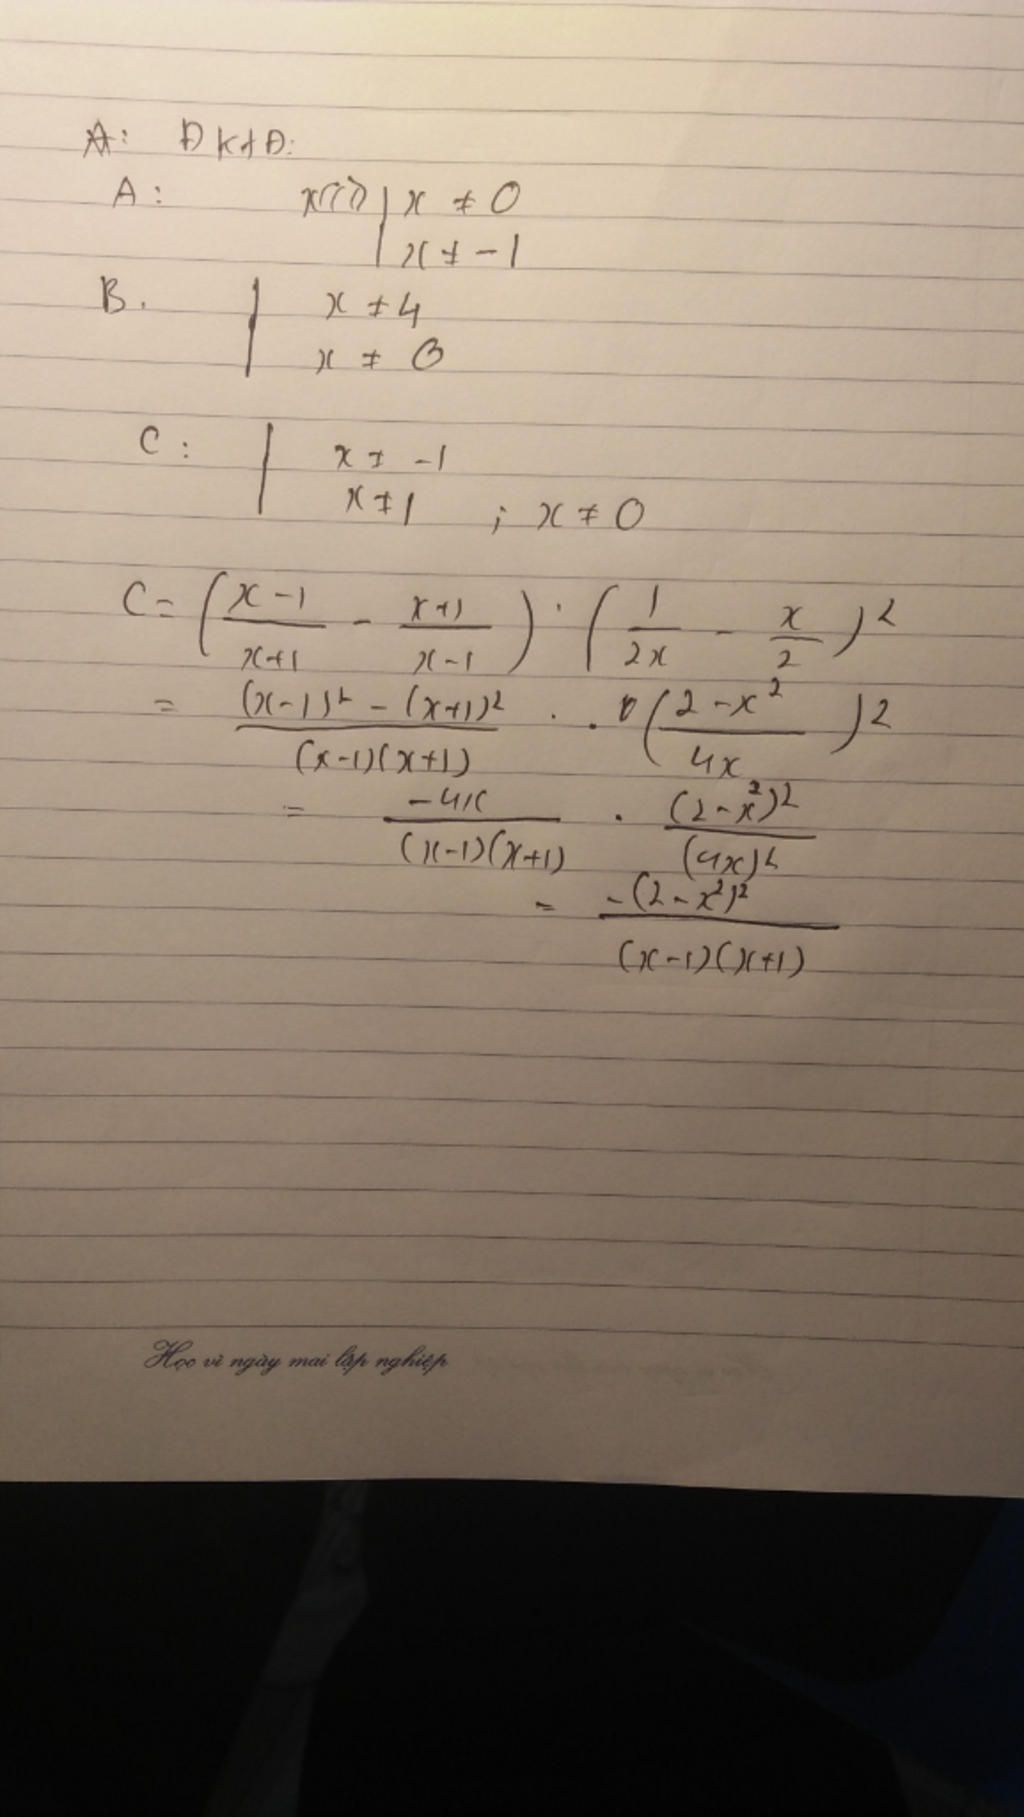 A: ĐKXĐ:
A: x ≠ 0
x ≠ -1
B. x ≠ 4
x ≠ 0
C: x ≠ -1
x ≠ 1 ; x ≠ 0
C = ( (x-1)/(x+1) - (x+1)/(x-1) ) . ( 1/(2x) - x/2 )²
= ((x-1)² - (x+1)²)/((x-1)(x+1)) . . ( (2-x²)/(4x) )²
= (-4x)/((x-1)(x+1)) . (2-x²)²/(4x)²
= -(2-x²)²/((x-1)(x+1))
Học vì ngày mai lập nghiệp